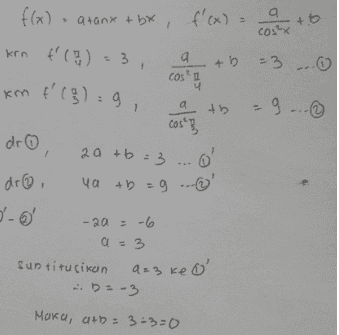 f(x) = a tan x + bx , f'(x) = a/cos²x + b
krn f'(π/4) = 3 , a/cos² π/4 + b = 3 ...①
krn f'(π/3) = 9 , a/cos² π/3 + b = 9 ...②
dr①, 2a + b = 3 ... ①'
dr②, 4a + b = 9 ...②'
①'-②' -2a = -6
a = 3
Subtitusikan a=3 ke ①'
∴ b = -3
Maka, a+b = 3-3=0